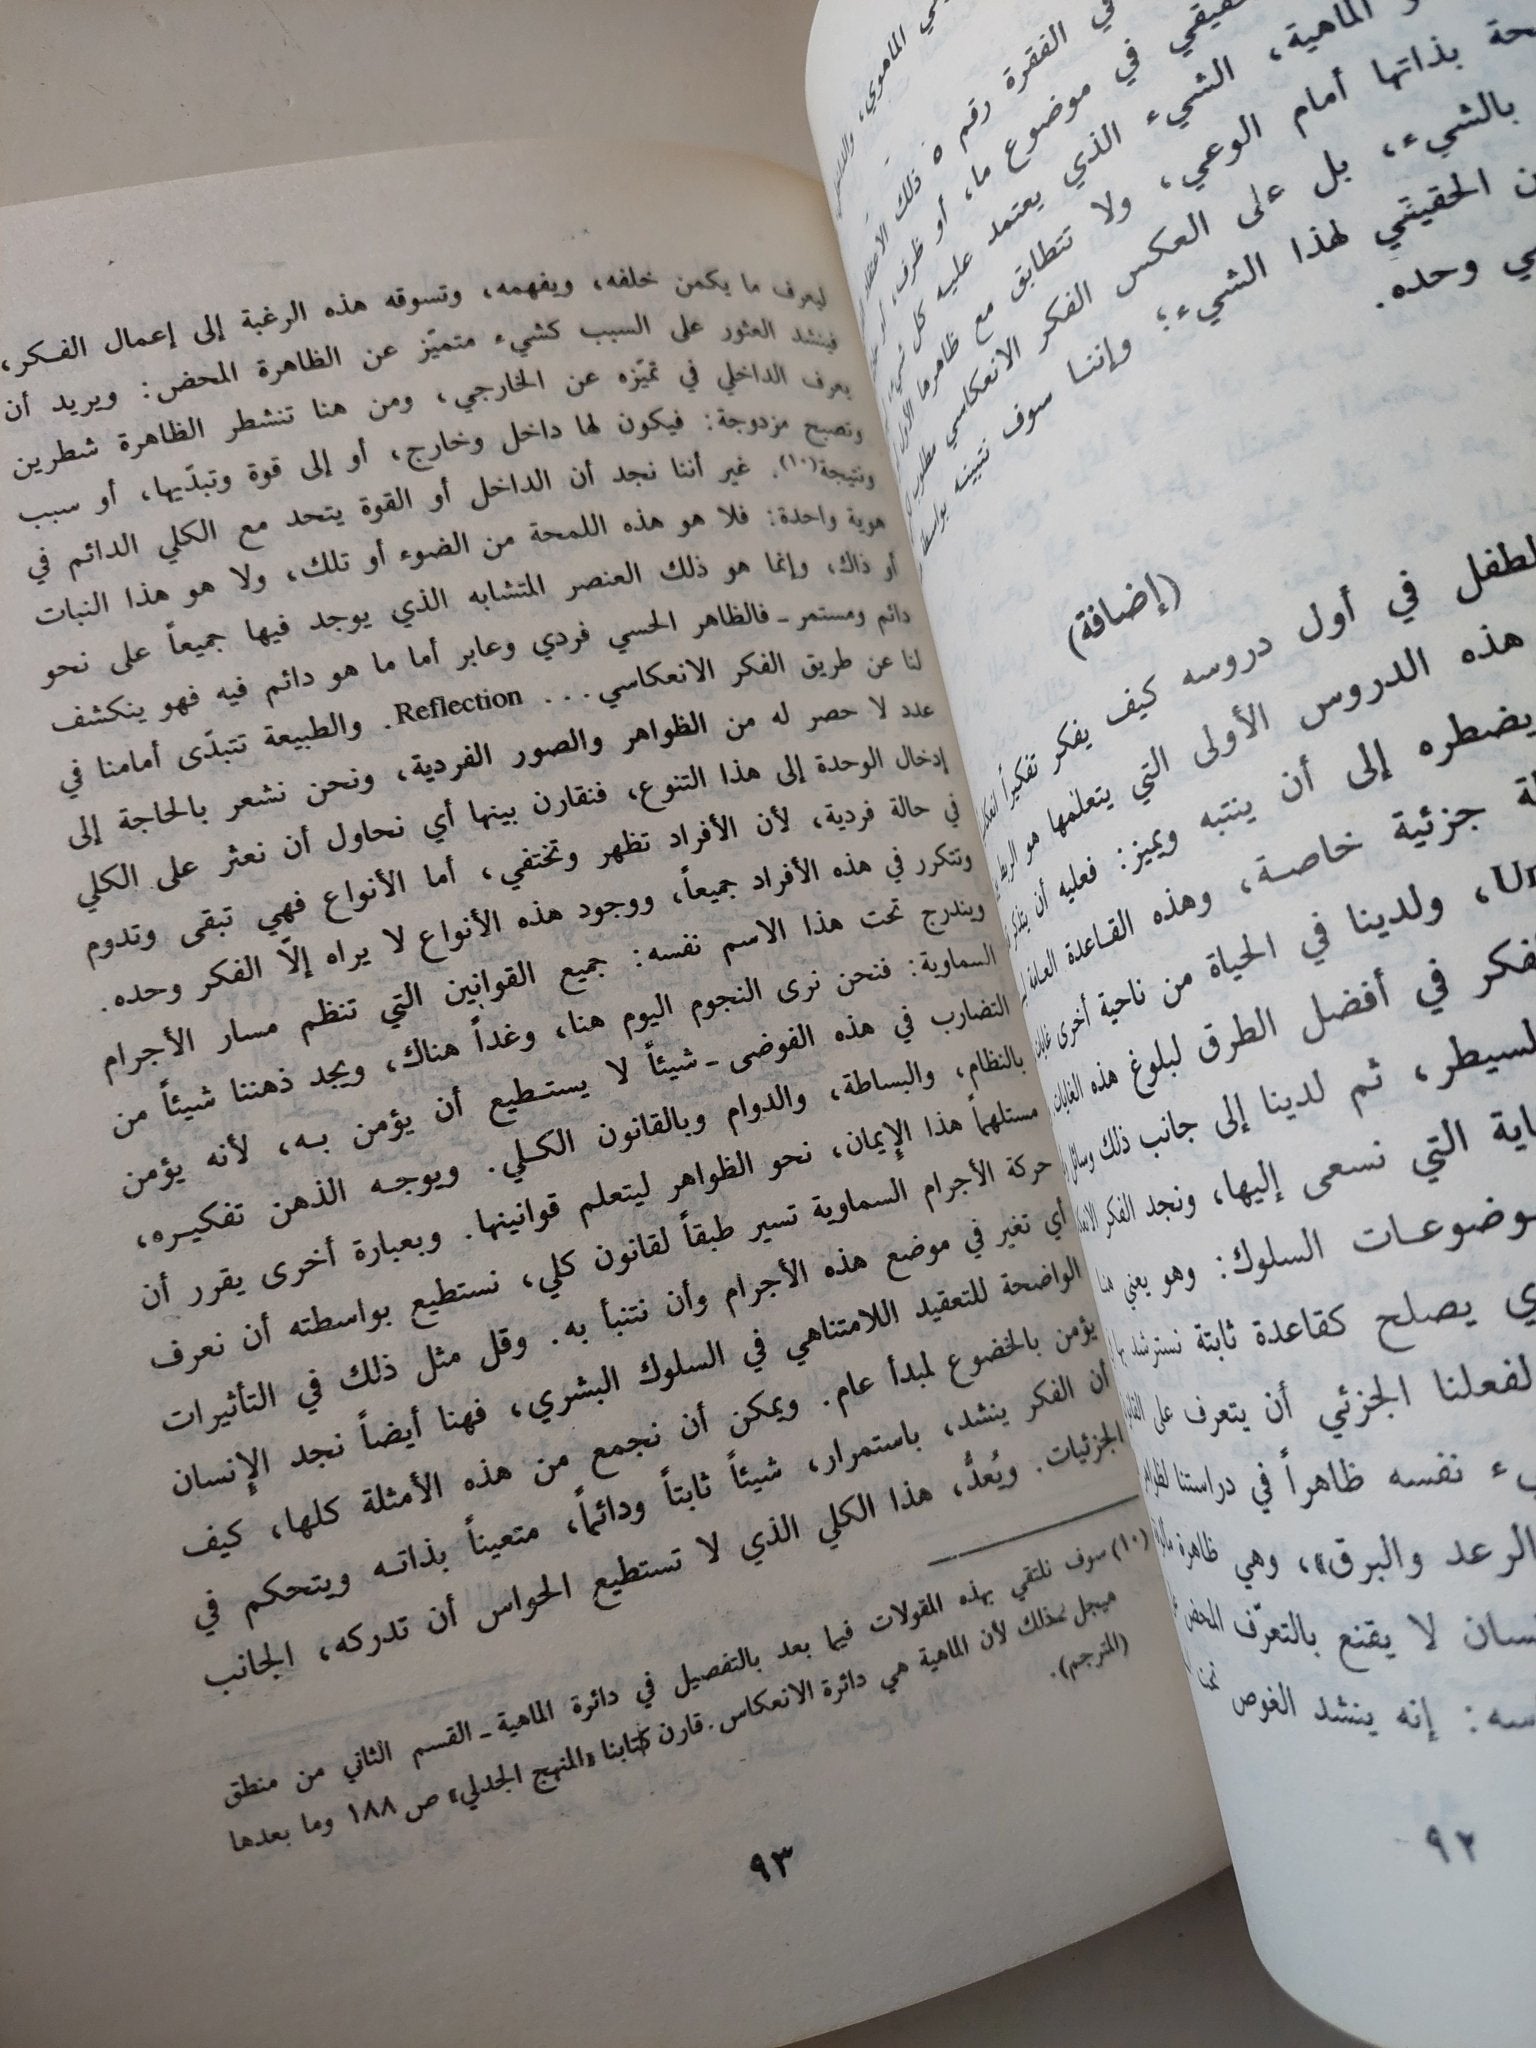 في الفقرة رقم ٥ ذلك الاعتقاد
حقيقي في موضوع ما، أو ظرف،
الماهية، الشيء الذي يعتمد عليه كل شيء
بذاتها أمام الوعي، ولا تتطابق مع ظاهرها
بالشيء، بل على العكس الفكر الانعكاسي مطلوب
الحقيقي لهذا الشيء؛ وإننا سوف نتبينه بواسطة
وحده.
(إضافة)
في أول دروسه كيف يفكر تفكيراً
هذه الدروس الأولى التي يتعلمها هو الربط
يضطره إلى أن ينتبه ويميز: فعليه أن يتذكر
جزئية خاصة، وهذه القاعدة العامة
ولدينا في الحياة من ناحية أخرى غايات
في أفضل الطرق لبلوغ هذه الغايات
ثم لدينا إلى جانب ذلك وسائل
التي نسعى إليها، ونجد الفكر
السلوك: وهو يعني هنا
يصلح كقاعدة ثابتة نسترشد بها
لفعلنا الجزئي أن يتعرف على
نفسه ظاهراً في دراستنا
الرعد والبرق»، وهي ظاهرة
لا يقنع بالتعرّف المحض
إنه ينشد الغوص
٩٢
ليعرف ما يكمن خلفه، ويفهمه، وتسوقه هذه الرغبة إلى إعمال الفكر،
فينشد العثور على السبب كشيء متميّز عن الظاهرة المحض: ويريد أن
يعرف الداخلي في تميّزه عن الخارجي، ومن هنا تنشطر الظاهرة شطرين
وتصبح مزدوجة: فيكون لها داخل وخارج، أو إلى قوة وتبدّيها، أو سبب
ونتيجة(١٠). غير أننا نجد أن الداخل أو القوة يتحد مع الكلي الدائم في
هوية واحدة: فلا هو هذه اللمحة من الضوء أو تلك، ولا هو هذا النبات
أو ذاك، وإنما هو ذلك العنصر المتشابه الذي يوجد فيها جميعاً على نحو
دائم ومستمر ـ فالظاهر الحسي فردي وعابر أما ما هو دائم فيه فهو ينكشف
لنا عن طريق الفكر الانعكاسي... Reflection. والطبيعة تتبدّى أمامنا في
عدد لا حصر له من الظواهر والصور الفردية، ونحن نشعر بالحاجة إلى
إدخال الوحدة إلى هذا التنوع، فنقارن بينها أي نحاول أن نعثر على الكلي
في حالة فردية، لأن الأفراد تظهر وتختفي، أما الأنواع فهي تبقى وتدوم
وتتكرر في هذه الأفراد جميعاً، ووجود هذه الأنواع لا يراه إلّا الفكر وحده.
ويندرج تحت هذا الاسم نفسه: جميع القوانين التي تنظم مسار الأجرام
السماوية: فنحن نرى النجوم اليوم هنا، وغداً هناك، ويجد ذهننا شيئاً من
التضارب في هذه الفوضى ـ شيئاً لا يستطيع أن يؤمن به، لأنه يؤمن
بالنظام، والبساطة، والدوام وبالقانون الكلي. ويوجه الذهن تفكيره،
مستلهماً هذا الإيمان، نحو الظواهر ليتعلم قوانينها. وبعبارة أخرى يقرر أن
حركة الأجرام السماوية تسير طبقاً لقانون كلي، نستطيع بواسطته أن نعرف
أي تغير في موضع هذه الأجرام وأن نتنبأ به. وقل مثل ذلك في التأثيرات
الواضحة للتعقيد اللامتناهي في السلوك البشري، فهنا أيضاً نجد الإنسان
يؤمن بالخضوع لمبدأ عام. ويمكن أن نجمع من هذه الأمثلة كلها، كيف
أن الفكر ينشد، باستمرار، شيئاً ثابتاً ودائماً، متعيناً بذاته ويتحكم في
الجزئيات. ويُعدُّ، هذا الكلي الذي لا تستطيع الحواس أن تدركه، الجانب
(١٠) سوف نلتقي بهذه المقولات فيما بعد بالتفصيل في دائرة الماهية ـ القسم الثاني من منطق
هيجل ـ ذلك لأن الماهية هي دائرة الانعكاس. قارن كتابنا «المنهج الجدلي» ص ١٨٨ وما بعدها
(المترجم).
٩٣